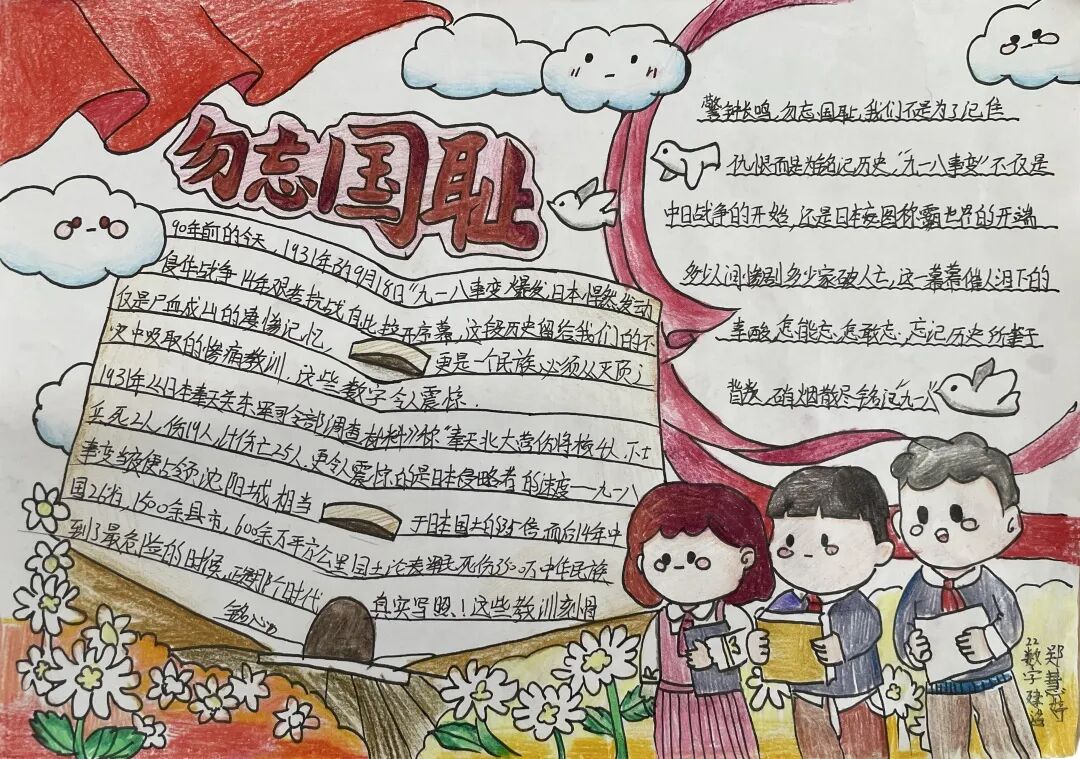 勿忘国耻
90年前的今天，1931年的9月18日"九一八事变"爆发，日本悍然发动
侵华战争，14年艰苦抗战自此拉开序幕，这段历史留给我们的不
仅是尸血成山的凄惨记忆，更是一个民族必须从灭顶之
灾中吸取的惨痛教训，这些数字令人震惊．
1931年24日本奉天关东军司令部调查材料》称"奉天北大营伤将校4人，下士
兵死2人，伤19人，计伤亡25人，更令人震惊的是日本侵略者的速度—九一八
事变当夜便占领沈阳城，相当于日本国土的3.5倍，而后14年中
国26省，1500余县市，600余万平方公里国土沦丧，死伤35 中华民族
到了最危险的时候，正是那个时代真实写照！这些教训刻骨
铭心
警钟长鸣，勿忘国耻，我们不是为了记住
仇恨而是为铭记历史，"九一八事变"不仅是
中日战争的开始，还是日本妄图称霸世界的开端
多少人间惨剧多少家破人亡，这一幕幕催人泪下的
辛酸，怎能忘，怎敢忘，忘记历史 所等于
背叛，硝烟散尽铭记"九一八"
22数字
郑慧婷